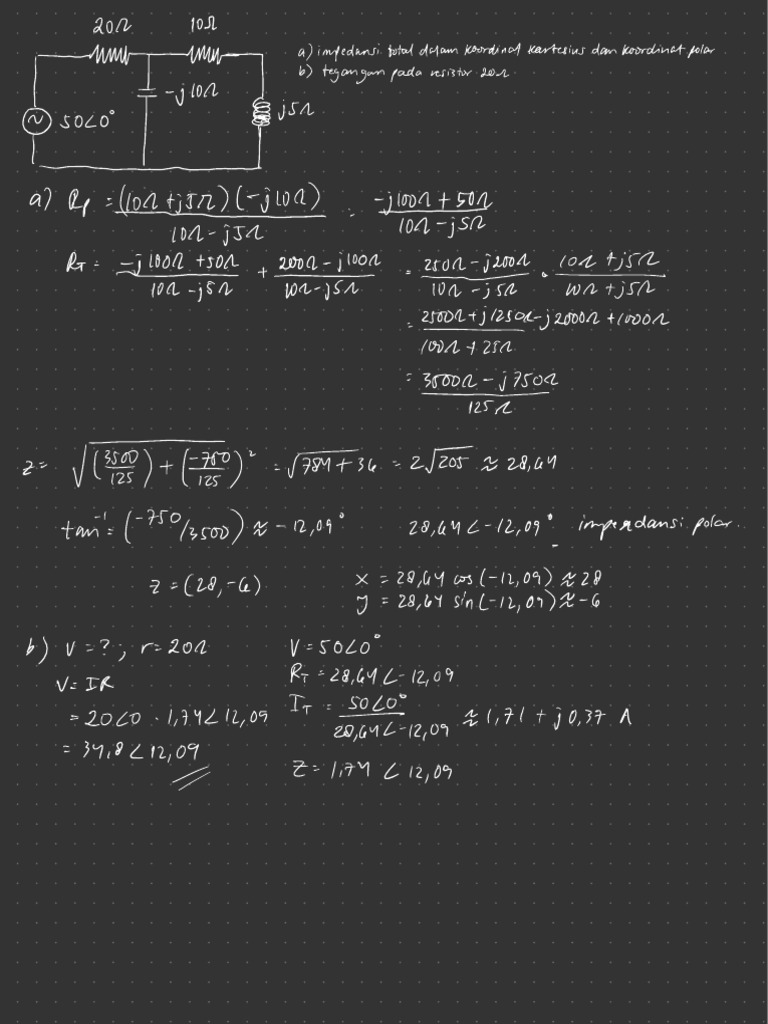 20Ω 10Ω
a) impedansi total dalam koordinat kartesius dan koordinat polar
b) tegangan pada resistor 20Ω
-j10Ω
50∠0°
j5Ω
a) Rp = (10Ω + j5Ω)(-j10Ω) / 10Ω - j5Ω = -j100Ω + 50Ω / 10Ω - j5Ω
RT = -j100Ω + 50Ω / 10Ω - j5Ω + 200Ω - j100Ω / 10Ω - j5Ω = 250Ω - j200Ω / 10Ω - j5Ω · 10Ω + j5Ω / 10Ω + j5Ω
= 2500Ω + j1250Ω - j2000Ω + 1000Ω / 100Ω + 25Ω
= 3500Ω - j750Ω / 125Ω
z = √(3500/125) + (-750/125)² = √784 + 36 = 2√205 ≈ 28,64
tan⁻¹ = (-750/3500) ≈ -12,09° 28,64∠-12,09° impedansi polar.
z = (28, -6) x = 28,64 cos(-12,09) ≈ 28
y = 28,64 sin(-12,09) ≈ -6
b) V = ? , r = 20Ω V = 50∠0°
V = IR RT = 28,64∠-12,09
= 20∠0 · 1,74∠12,09 IT = 50∠0° / 28,64∠-12,09 ≈ 1,71 + j0,37 A
= 34,8∠12,09 Z = 1,74∠12,09